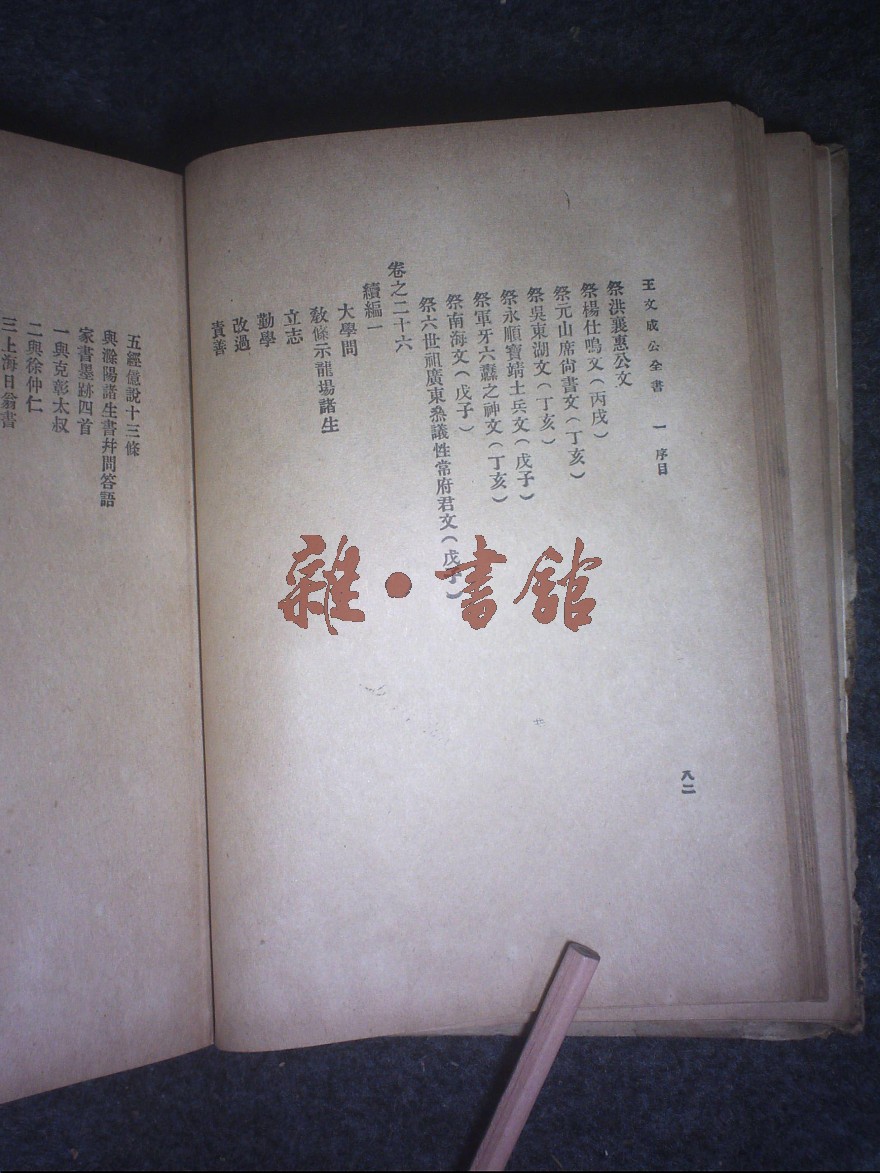 王文成公全書 一 序目
祭洪襄惠公文
祭楊仕鳴文(丙戌)
祭元山席尙書文(丁亥)
祭吳東湖文(丁亥)
祭永順寶靖土兵文(戊子)
祭軍牙六纛之神文(丁亥)
祭南海文(戊子)
祭六世祖廣東叅議性常府君文(戊子)
卷之二十六
續編一
大學問
敎條示龍場諸生
立志
勤學
改過
責善
八二
五經億說十三條
與滁陽諸生書幷問答語
家書墨跡四首
一與克彰太叔
二與徐仲仁
三上海日翁書
雜·書館